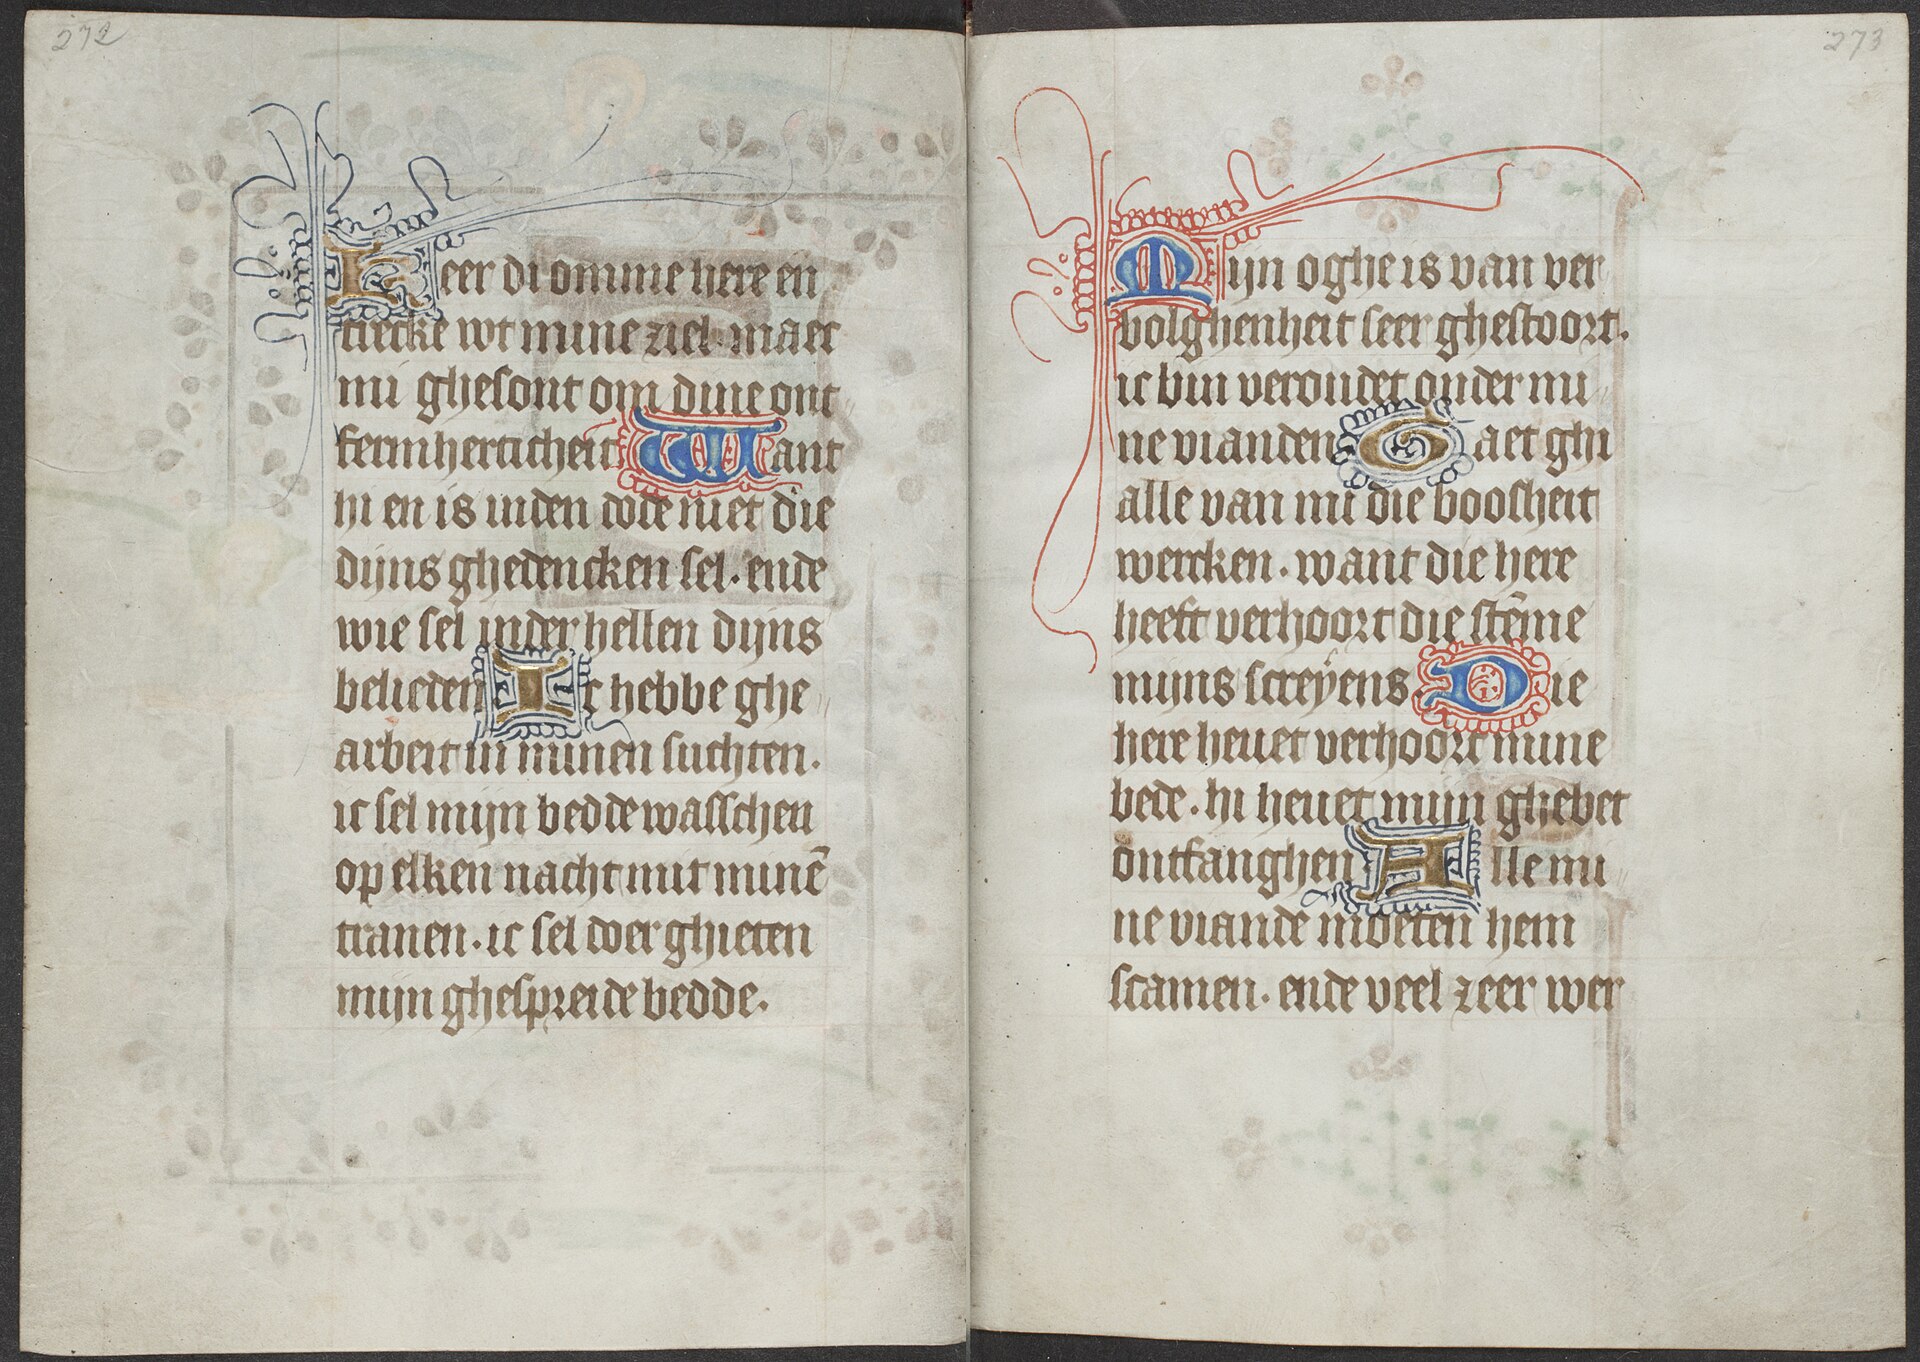 272
Keer di omme here en
trecke wt mine ziel. maec
mi ghesont om dine ont
fermherticheit Want
hi en is inden dode niet die
dijns ghedencken sel. ende
wie sel inder hellen dijns
belieden Ic hebbe ghe
arbeit in minen suchten.
ic sel mijn bedde wasschen
op elken nacht mit minē
tranen. ic sel doer ghieten
mijn ghespreide bedde.
273
Mijn oghe is van ver
bolghenheit seer ghestoort.
ic bin veroudet onder mi
ne vianden Gaet ghi
alle van mi die boosheit
wercken. want die here
heeft verhoort die stēme
mijns screyens. Die
here heuet verhoort mine
bede. hi heuet mijn ghebet
ontfanghen Alle mi
ne viande moeten hem
scamen. ende veel zeer wer